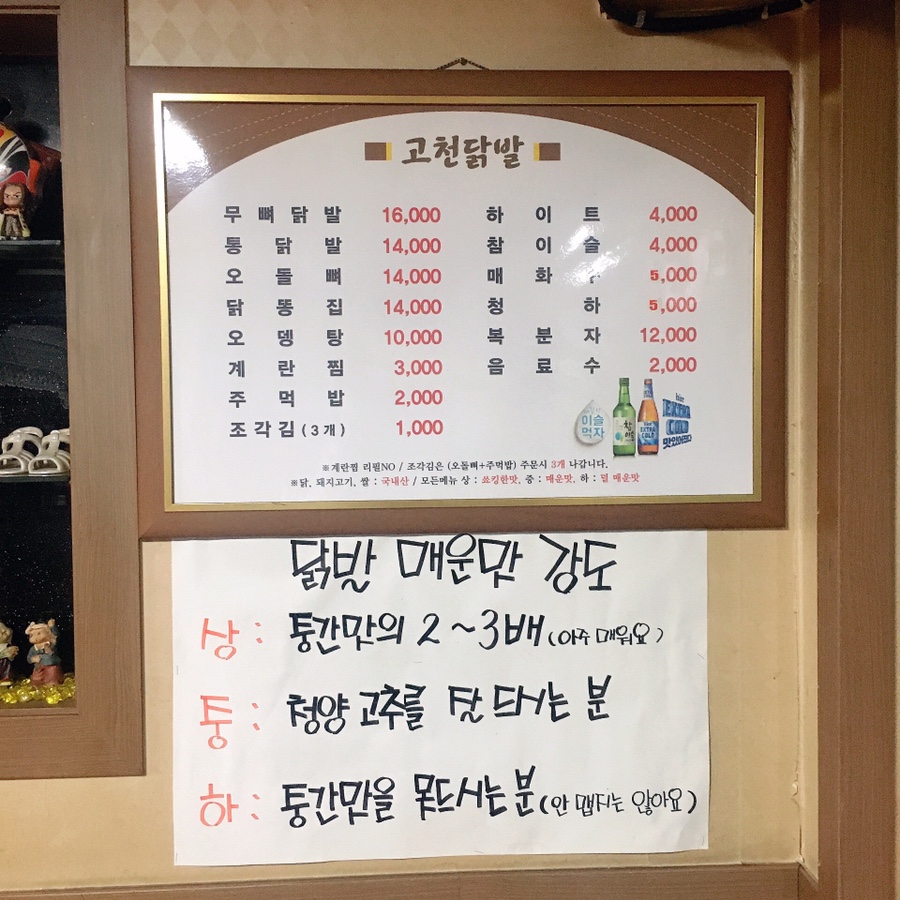 고천닭발
무뼈닭발 16,000
통닭발 14,000
오돌뼈 14,000
닭똥집 14,000
오뎅탕 10,000
계란찜 3,000
주먹밥 2,000
조각김(3개) 1,000
하이트 4,000
참이슬 4,000
매화 5,000
청하 5,000
복분자 12,000
음료수 2,000
이슬
먹자
EXTRA
COLD
맛있어졌다
※계란찜 리필NO / 조각김은 (오돌뼈+주먹밥) 주문시 3개 나갑니다.
※닭, 돼지고기, 쌀 : 국내산 / 모든메뉴 상 : 쇼킹한맛, 중 : 매운맛, 하 : 덜 매운맛
닭발 매운맛 강도
상 : 중간맛의 2~3배(아주 매워요)
중 : 청양고추를 잘 드시는 분
하 : 중간맛을 못드시는분(안 맵지는 않아요)